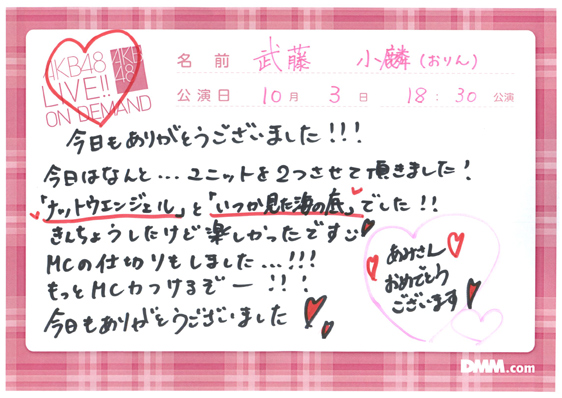 AKB48
LIVE!!
ON DEMAND
AKB
48
名前 武藤 小麟(おりん)
公演日 10月 3日 18:30 公演
今日もありがとうございました!!!
今日はなんと...ユニットを2つさせて頂きました!
「ナットウエンジェル」と「いつか見た海の底」でした!!
きんちょうしたけど楽しかったです
MCの仕切りもしました...!!!
もっとMC力つけるぞー!!!
今日もありがとうございました
あみさん
おめでとう
ございます
DMM.com